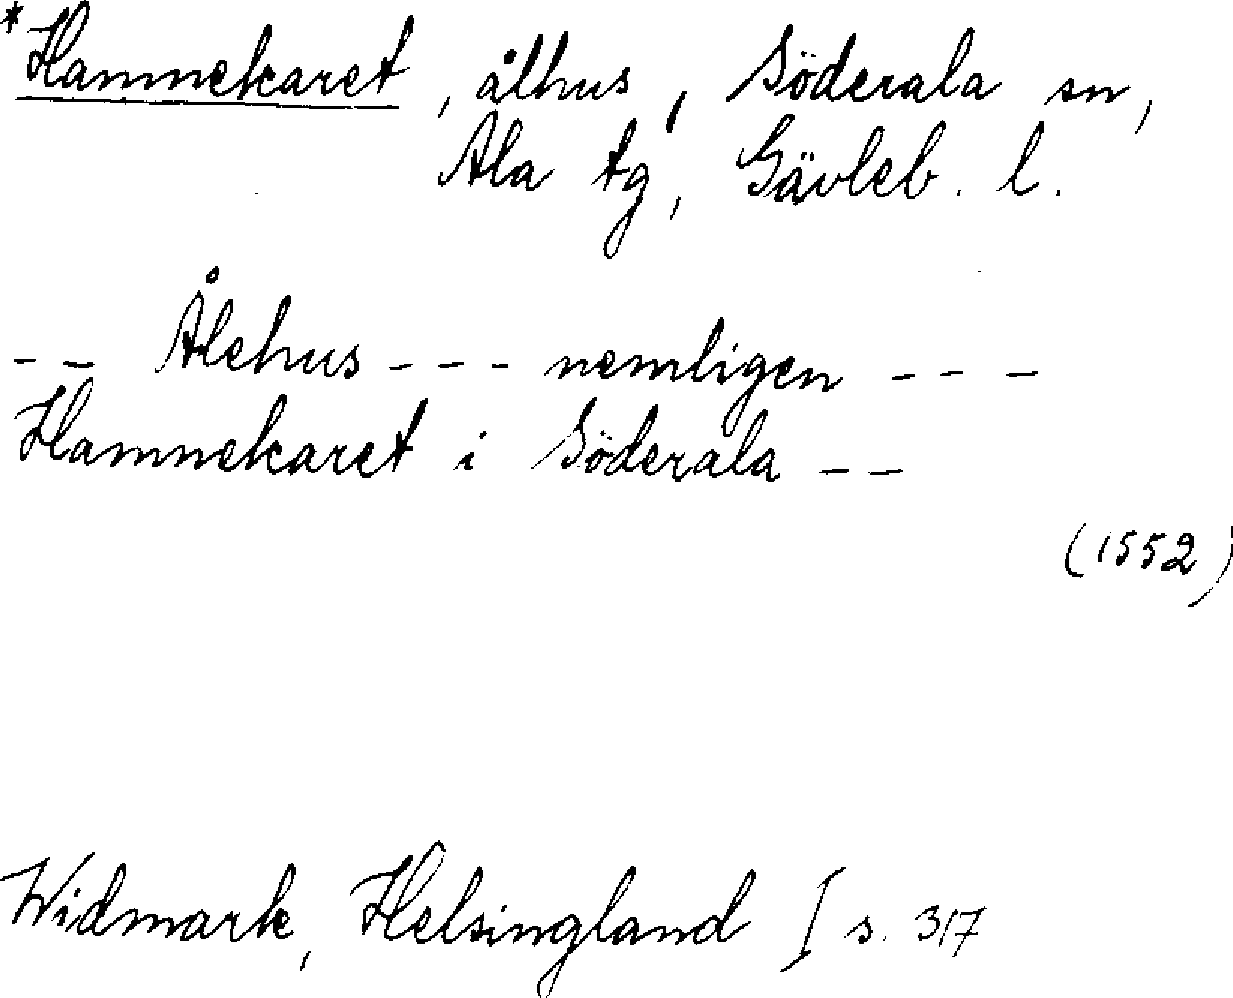 *Hamnekaret, ålhus, Söderala sn,
Ala tg, Gävleb. l.
-- Ålehus --- nemligen ---
Hamnekaret i Söderala --
(1552)
Widmark, Helsingland I s. 317